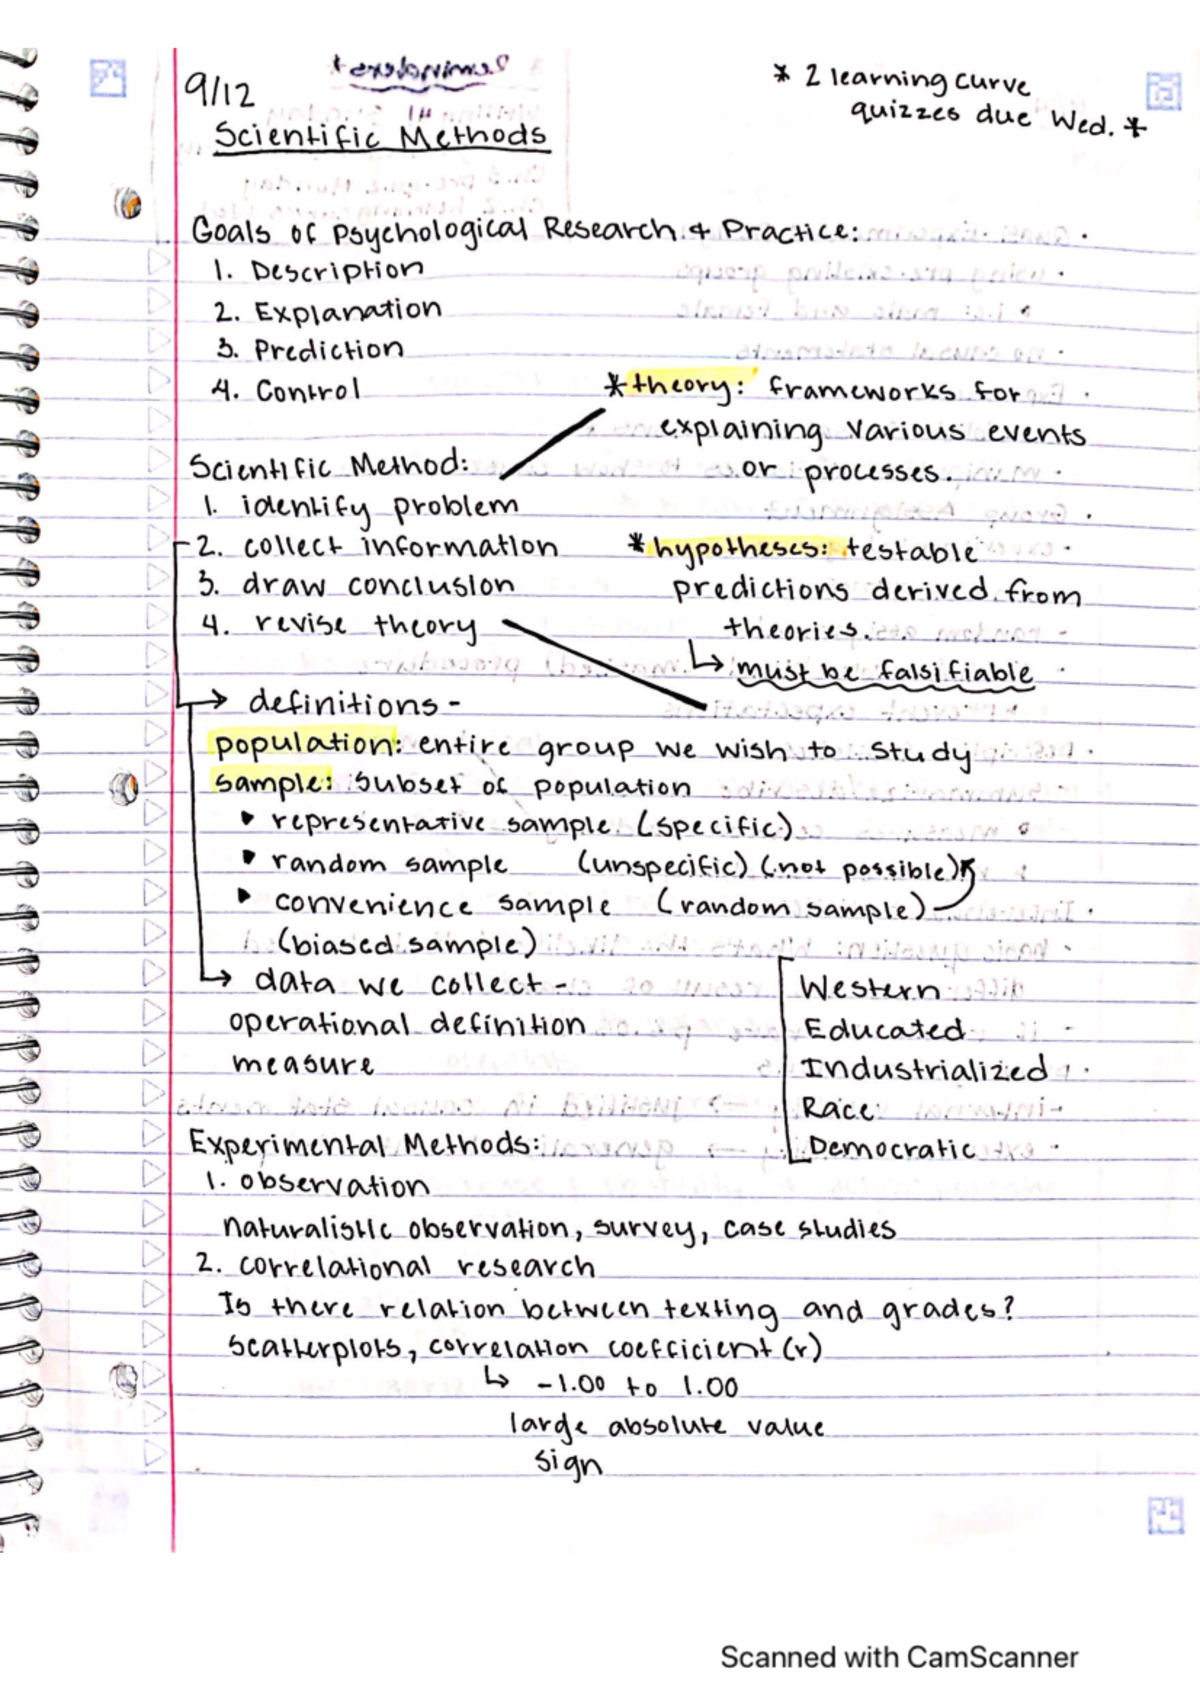 9/12
* 2 learning curve
quizzes due Wed. *
Scientific Methods
Goals of Psychological Research & Practice:
1. Description
2. Explanation
3. Prediction
4. Control
*theory: frameworks for
explaining various events
or processes.
Scientific Method:
1. identify problem
2. collect information
3. draw conclusion
4. revise theory
*hypotheses: testable
predictions derived from
theories.
↳ must be falsifiable
→ definitions -
population: entire group we wish to study
sample: subset of population
‣ representative sample (specific)
‣ random sample (unspecific) (not possible)
‣ convenience sample (random sample)
(biased sample)
→ data we collect -
operational definition
measure
Western
Educated
Industrialized
Race
Democratic
Experimental Methods:
1. observation
naturalistic observation, survey, case studies
2. correlational research
Is there relation between texting and grades?
scatterplots, correlation coefficient (r)
↳ -1.00 to 1.00
large absolute value
sign
Scanned with CamScanner